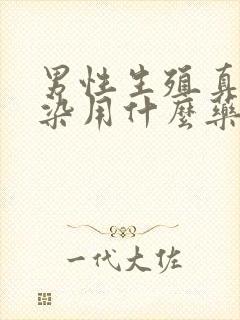 男性生殖真
染用什麼藥
一代大佐